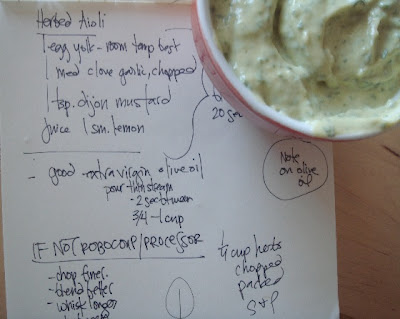 Herbed Aioli
1 egg yolk - room temp best
1 med clove garlic, chopped
1 tsp. dijon mustard
Juice 1 sm. lemon
20 sec
- good extra virgin olive oil
pour thin stream
- 2 sec between
3/4 - 1 cup
Note
on olive
oil
IF NOT ROBOCOUP/PROCESSOR
- chop finer
- blend better
- whisk longer
1/4 cup herbs
chopped
packed
S + P